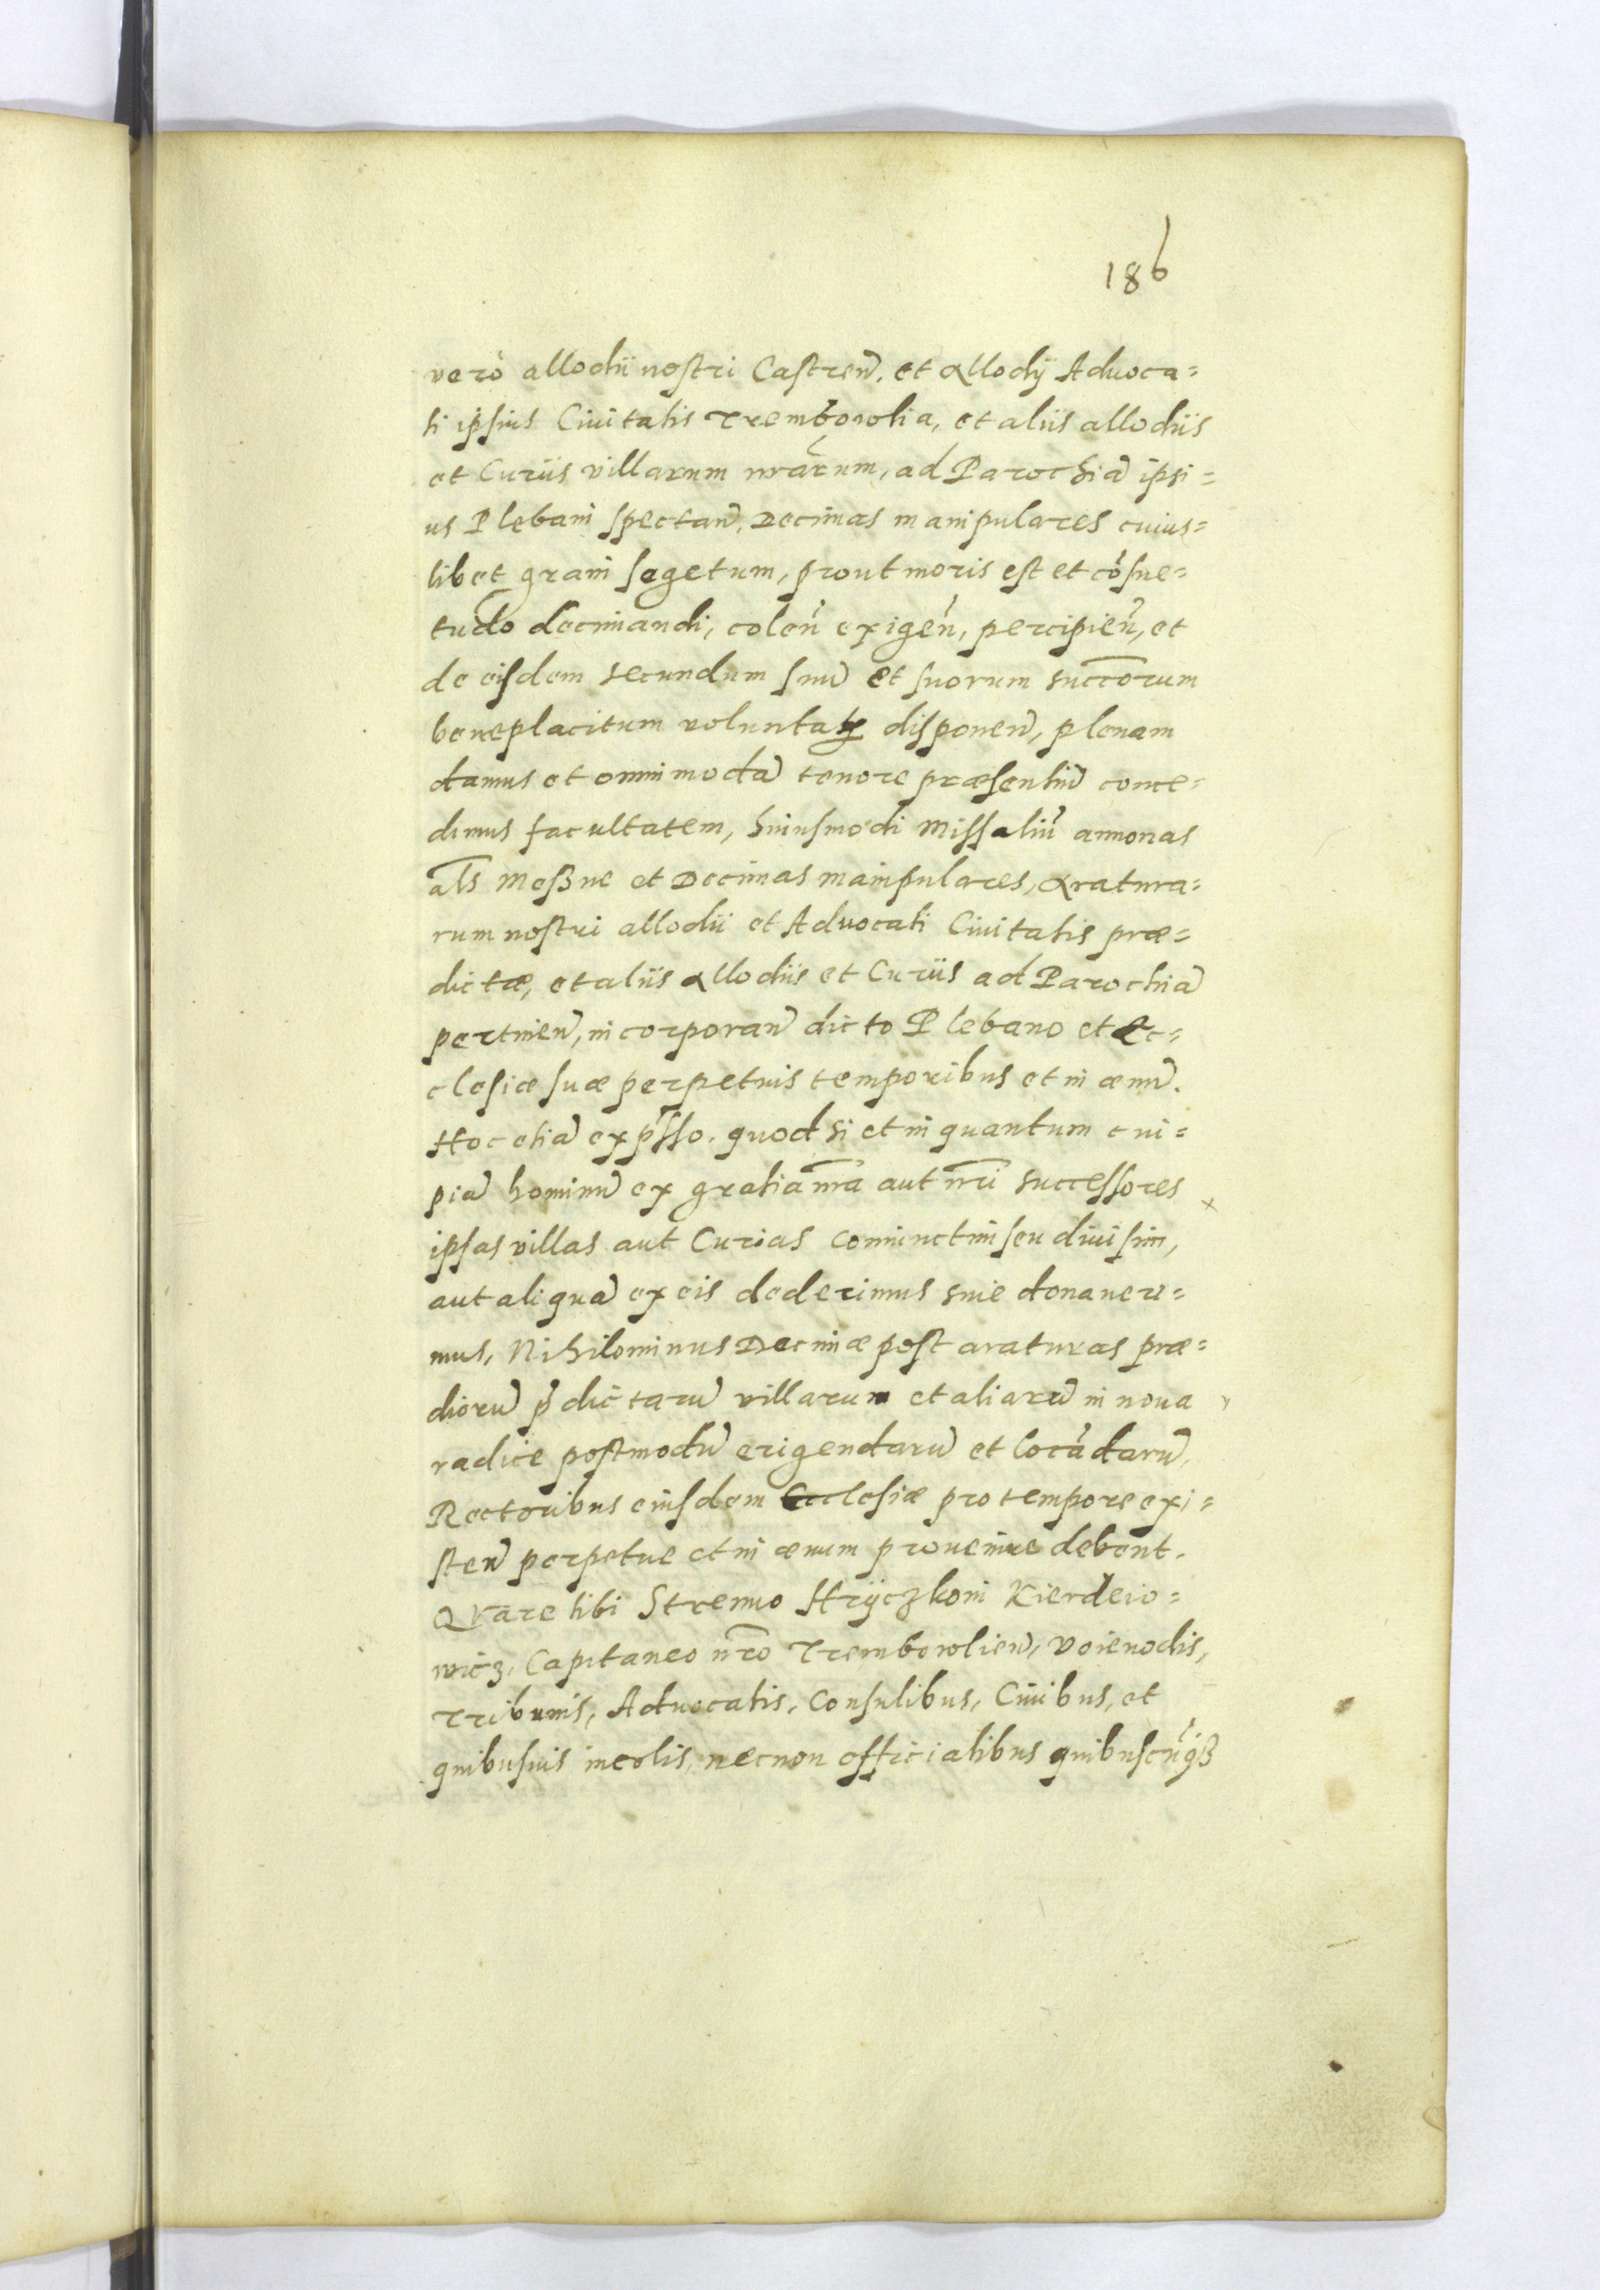 186
verò allodii nostri Castren̄. et allodij Advoca=
ti ipsius Civitatis Trembowlia, et aliis allodiis
et Curiis villarum nr̄arum, ad Parochiā ipsi=
us Plebani spectan̄. Decimas manipulares cuius=
libet grani segetum, prout moris est et cōsue=
tudo decimandi, colen̄ exigen̄, percipien̄, et
de eisdem secundum suū et suorum succ̄orum
beneplacitum voluntatis disponen̄, plenam
damus et omnimodā tenore præsentiū conce=
dimus facultatem, huiusmodi Missaliū annonas
al̄s Meszne et Decimas manipulares, aratura=
rum nostri allodii et Advocati Civitatis præ=
dictæ, et aliis allodiis et Curiis ad Parochiā
pertinen̄, incorporan̄ dicto Plebano et Ec=
clesiæ suæ perpetuis temporibus et in ævū.
Hoc etiā exp̄sso. quod si et in quantum cui=
piā hominū ex gratia nr̄a aut nr̄i successores
ipsas villas aut Curias coniunctim seu divisim,
aut aliquā ex eis dederimus sive donaveri=
mus, Nihilominus Decimæ post araturas præ=
diorū p̄dictarū villarum et aliarū in nova
radice postmodū erigendarū et locādarū,
Rectoribus eiusdem Ecclesiæ pro tempore exi=
sten̄ perpetue et in ævum provenire debent.
Quare tibi Strenuo Hryczkoni Kierdeio=
wicz, Capitaneo nr̄o Trembowlien̄, Voievodis,
Tribunis, Advocatis, Consulibus, Civibus, et
quibusvis incolis, necnon officialibus quibuscūqȝ